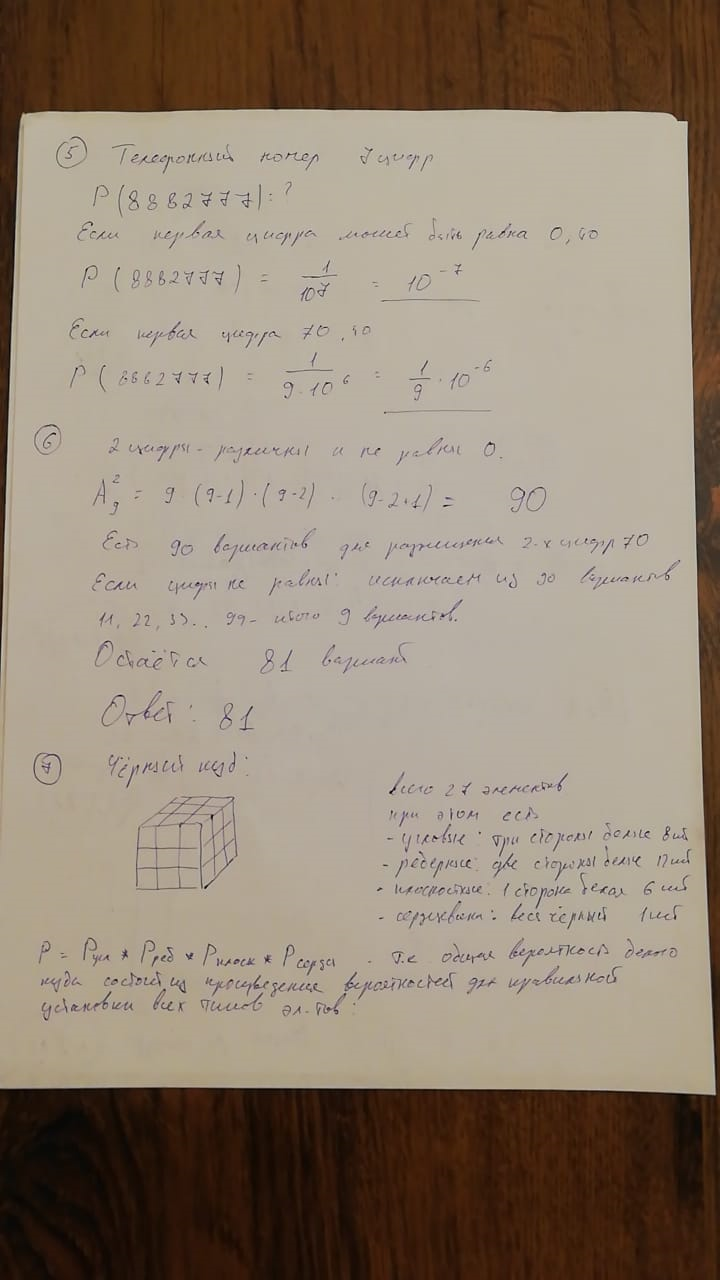 5 Телефонный номер 7 цифр
P(8882777) = ?
Если первая цифра может быть равна 0, то
P(8882777) = 1/10^7 = 10^-7
Если первая цифра ≠0, то
P(8882777) = 1/(9·10^6) = 1/9 · 10^-6
6 2 цифры - различны и не равны 0.
A_9^2 = 9·(9-1)·(9-2) .. (9-2+1) = 90
Есть 90 вариантов для размещения 2-х цифр ≠0
Если цифры не равны: исключаем из 90 вариантов
11, 22, 33.. 99- итого 9 вариантов.
Остаётся 81 вариант
Ответ: 81
7 Чёрный куб:
Всего 27 элементов
при этом есть
- угловые: три стороны белые 8шт
- рёберные: две стороны белые 12шт
- плоскостные: 1 сторона белая 6 шт
- сердцевина: весь чёрный 1шт
P = Pугл * Pреб * Pплоск * Pсердц . Т.к общая вероятность белого
куба состоит из произведения вероятностей для правильной
установки всех типов эл-тов: